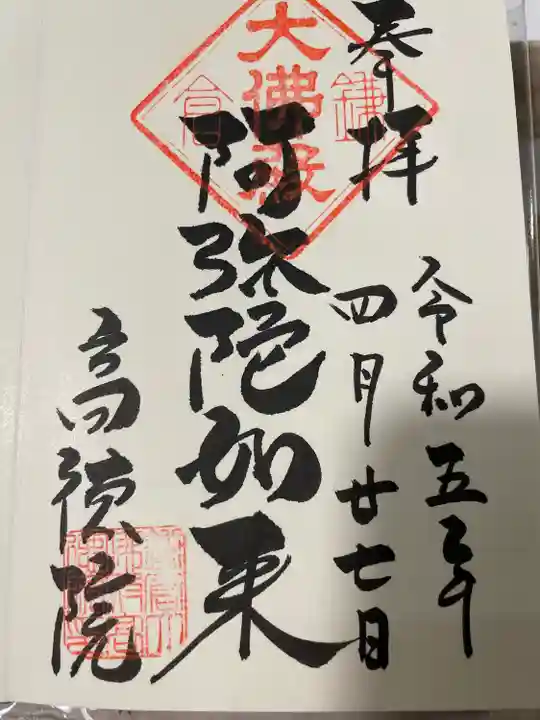 奉拝
令和五年
四月廿七日
大佛殿
鎌倉
阿弥陀如来
高徳院